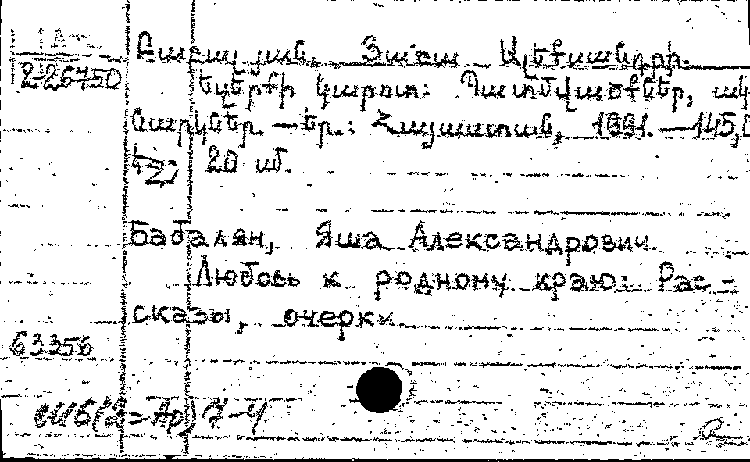 2-26750 Բաբալյան, Յաշա Ալեքսանդրի.
Եզերքի կարոտ: Պատմվածքներ, ակ
նարկներ. —Եր.: Հայաստան, 1991.—145,
էջ; 20 սմ.
Бабалян, Яша Александрович
Любовь к родному краю: Рас-
сказы, очерки.
63356